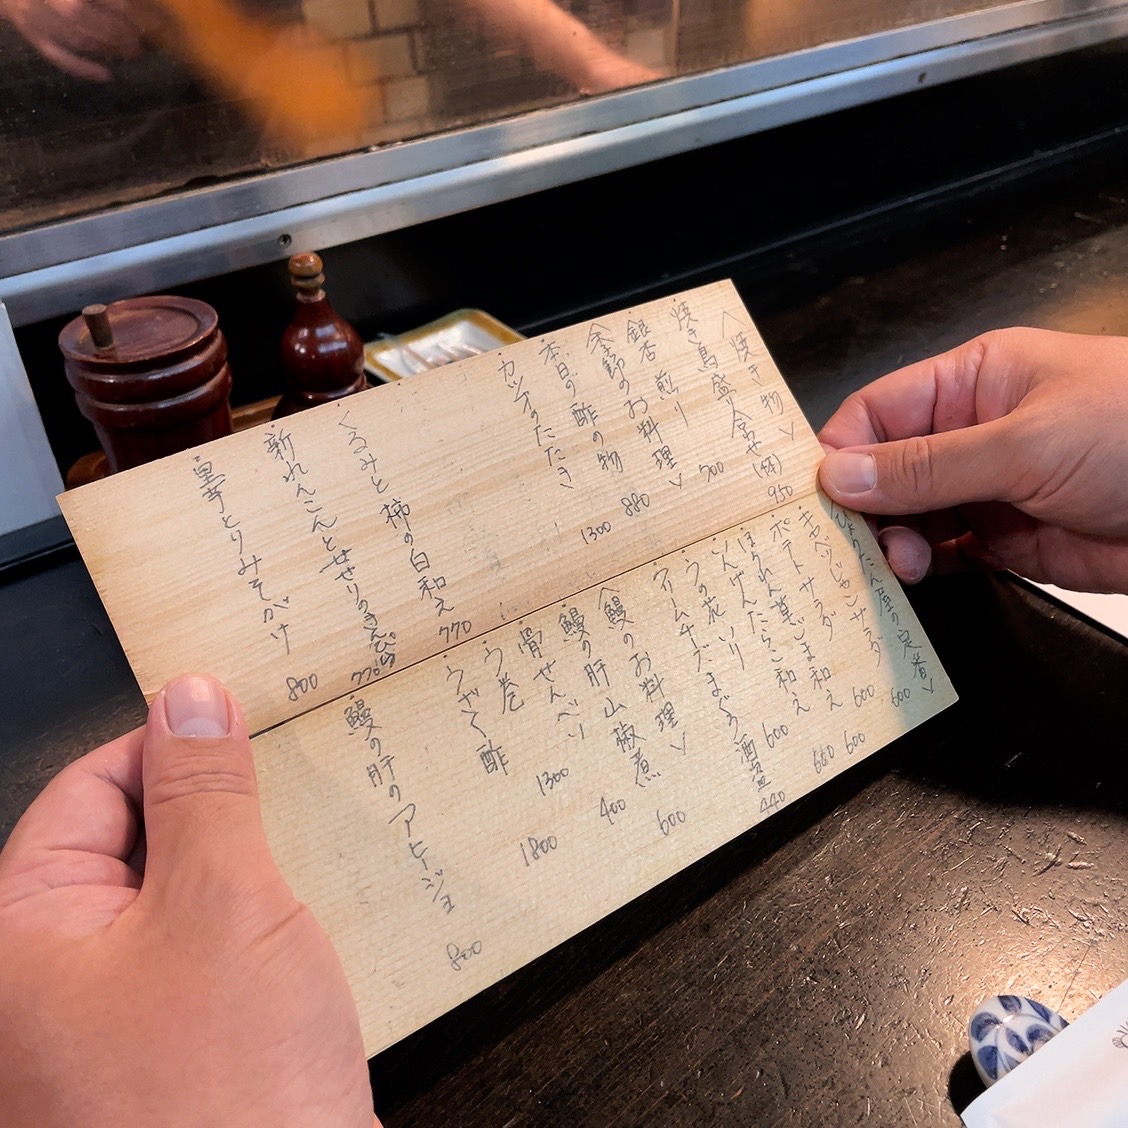 〈焼き物〉
・焼き鳥盛り合せ 950
・銀杏 煎り 700
〈季節のお料理〉
・本日の酢の物 880
・カツオのたたき 1300
・くるみと柿の白和え 770
・新れんこんとせせりのきんぴら 770
・里芋とりみそがけ 800
〈ひょうたん屋の定番〉
・キャベツじゃンサラダ 600
・ポテトサラダ 600
・ほうれん草ごま和え 600
・いんげんたらこ和え
・うの花いり 600
・クリームチーズまぐろ酒盗 440
〈鰻のお料理〉
・鰻の肝山椒煮 600
・骨せんべい 400
・う巻 1300
・うざく酢 1800
・鰻の肝のアヒージョ 800